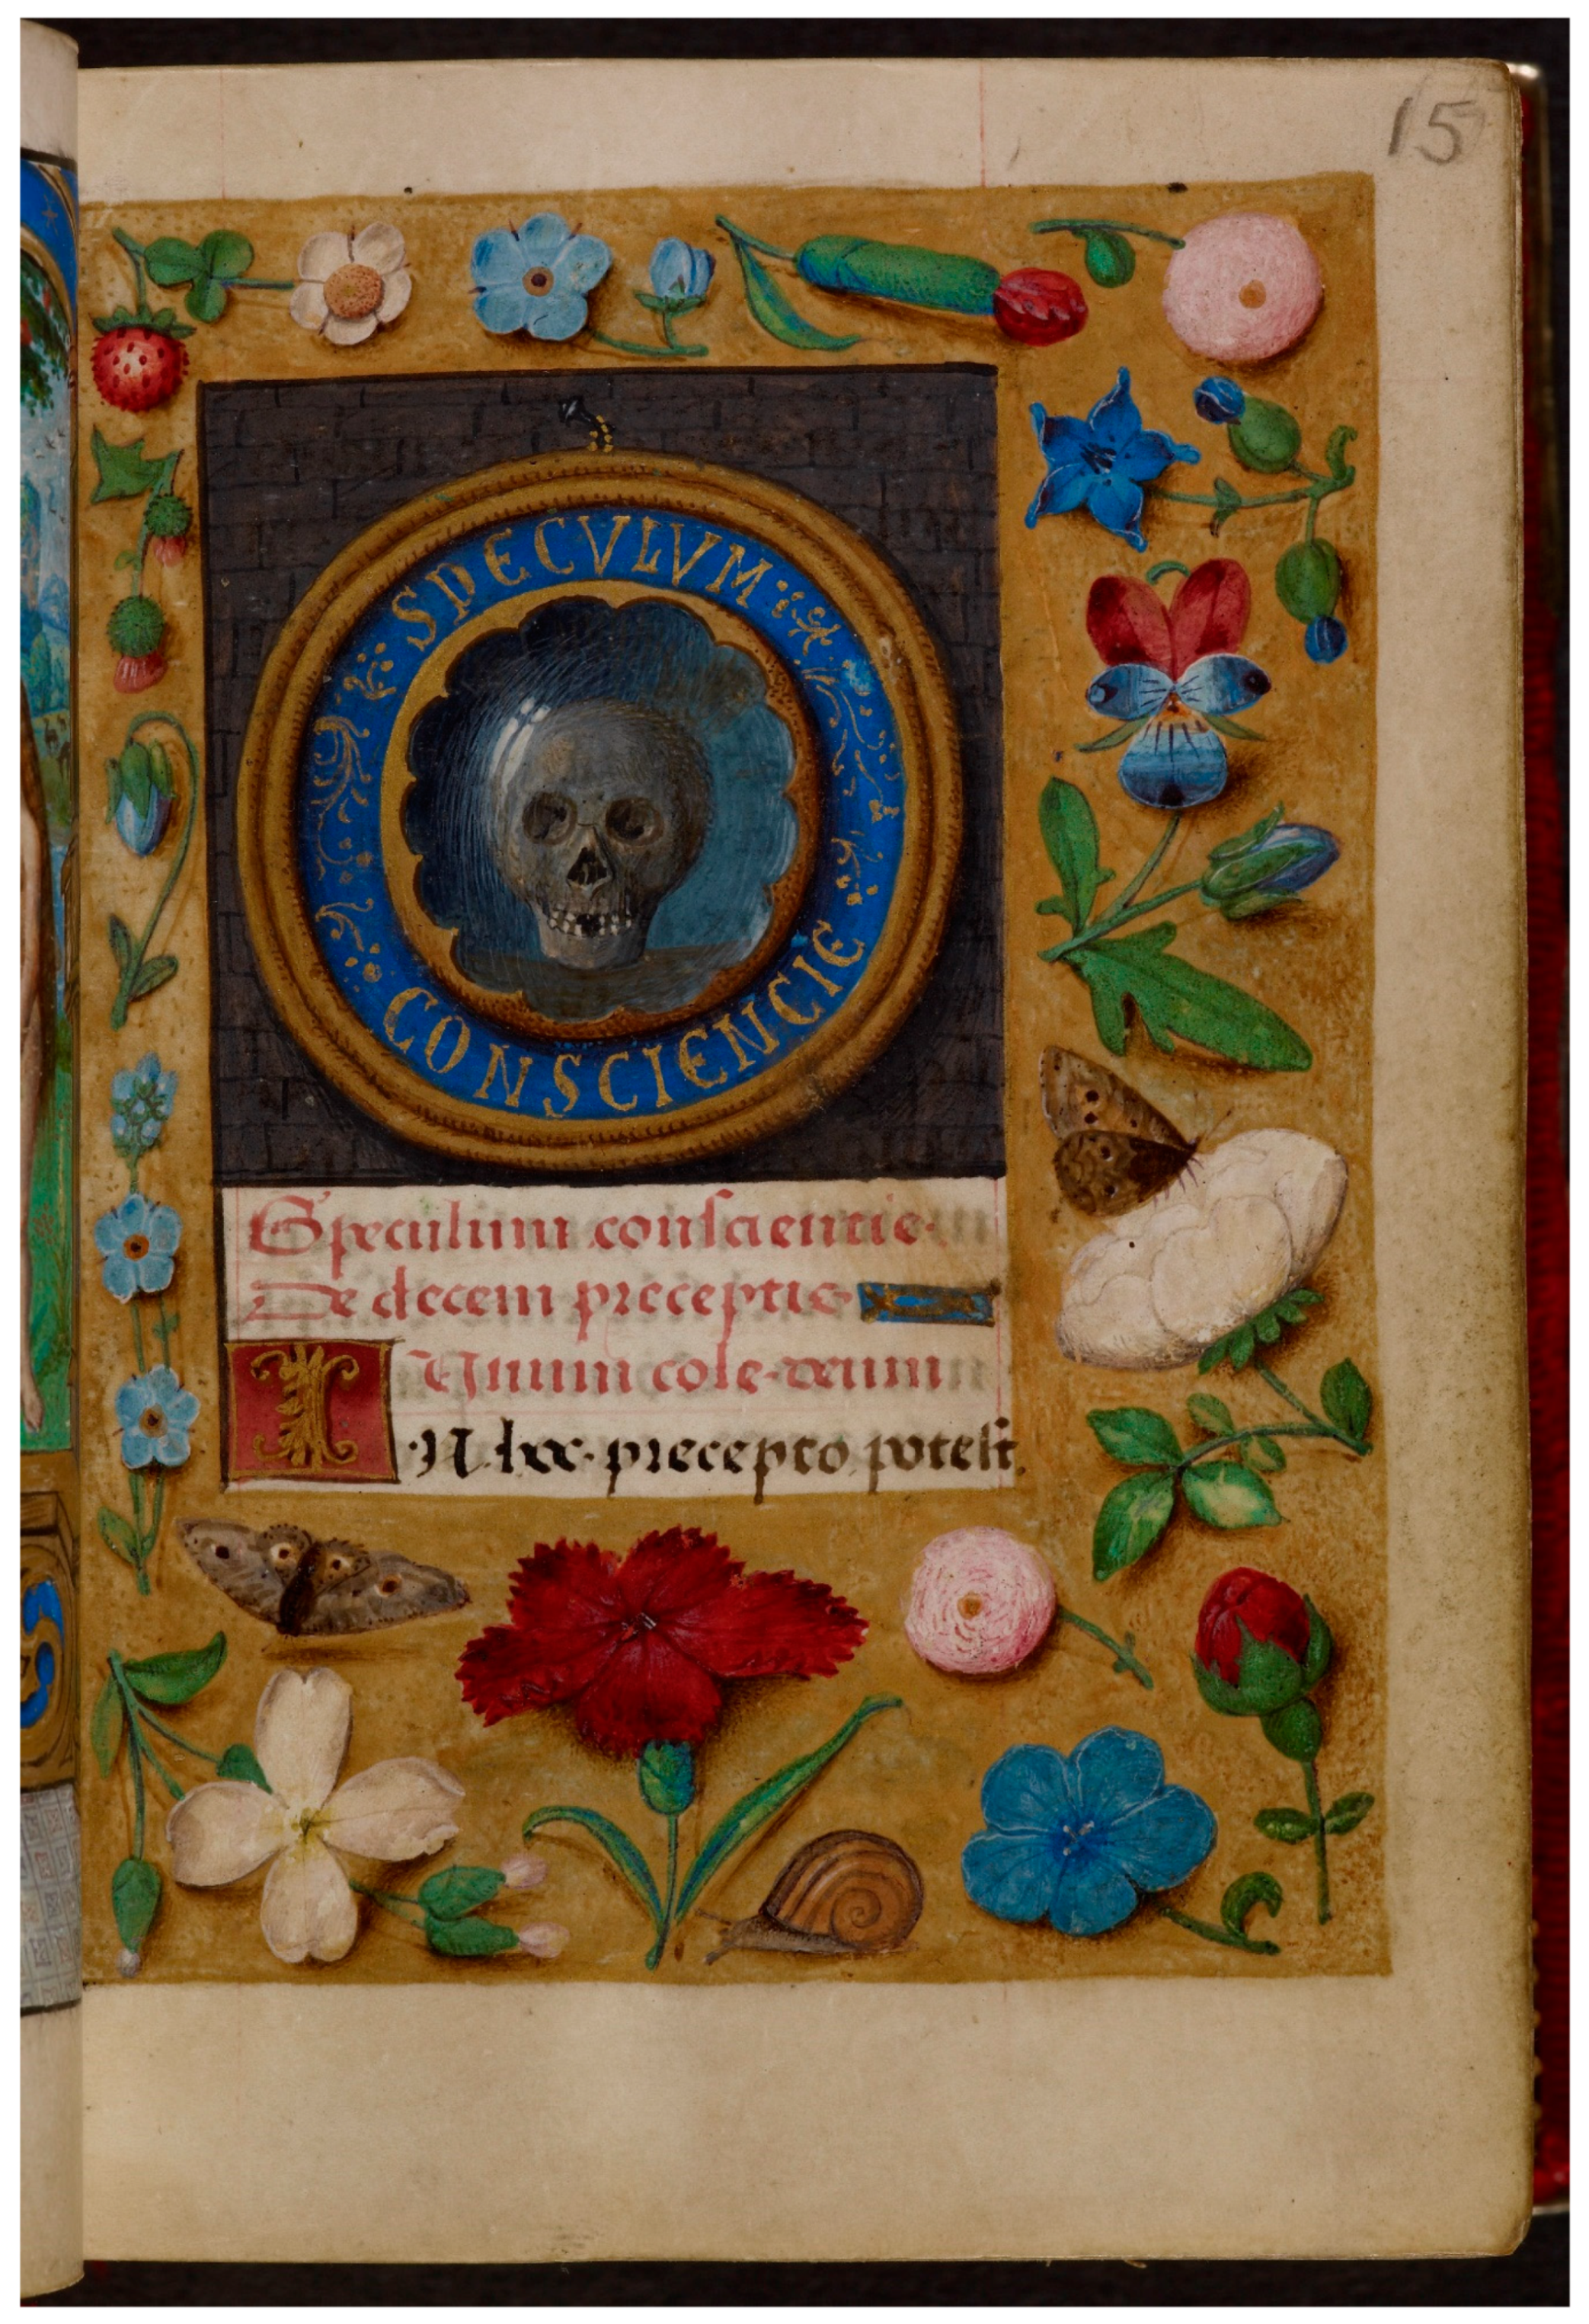 15
SPECVLVM
CONSCIENCIE
Speculum conscientie.
De decem preceptis
Unum cole deum
IN hoc precepto potest